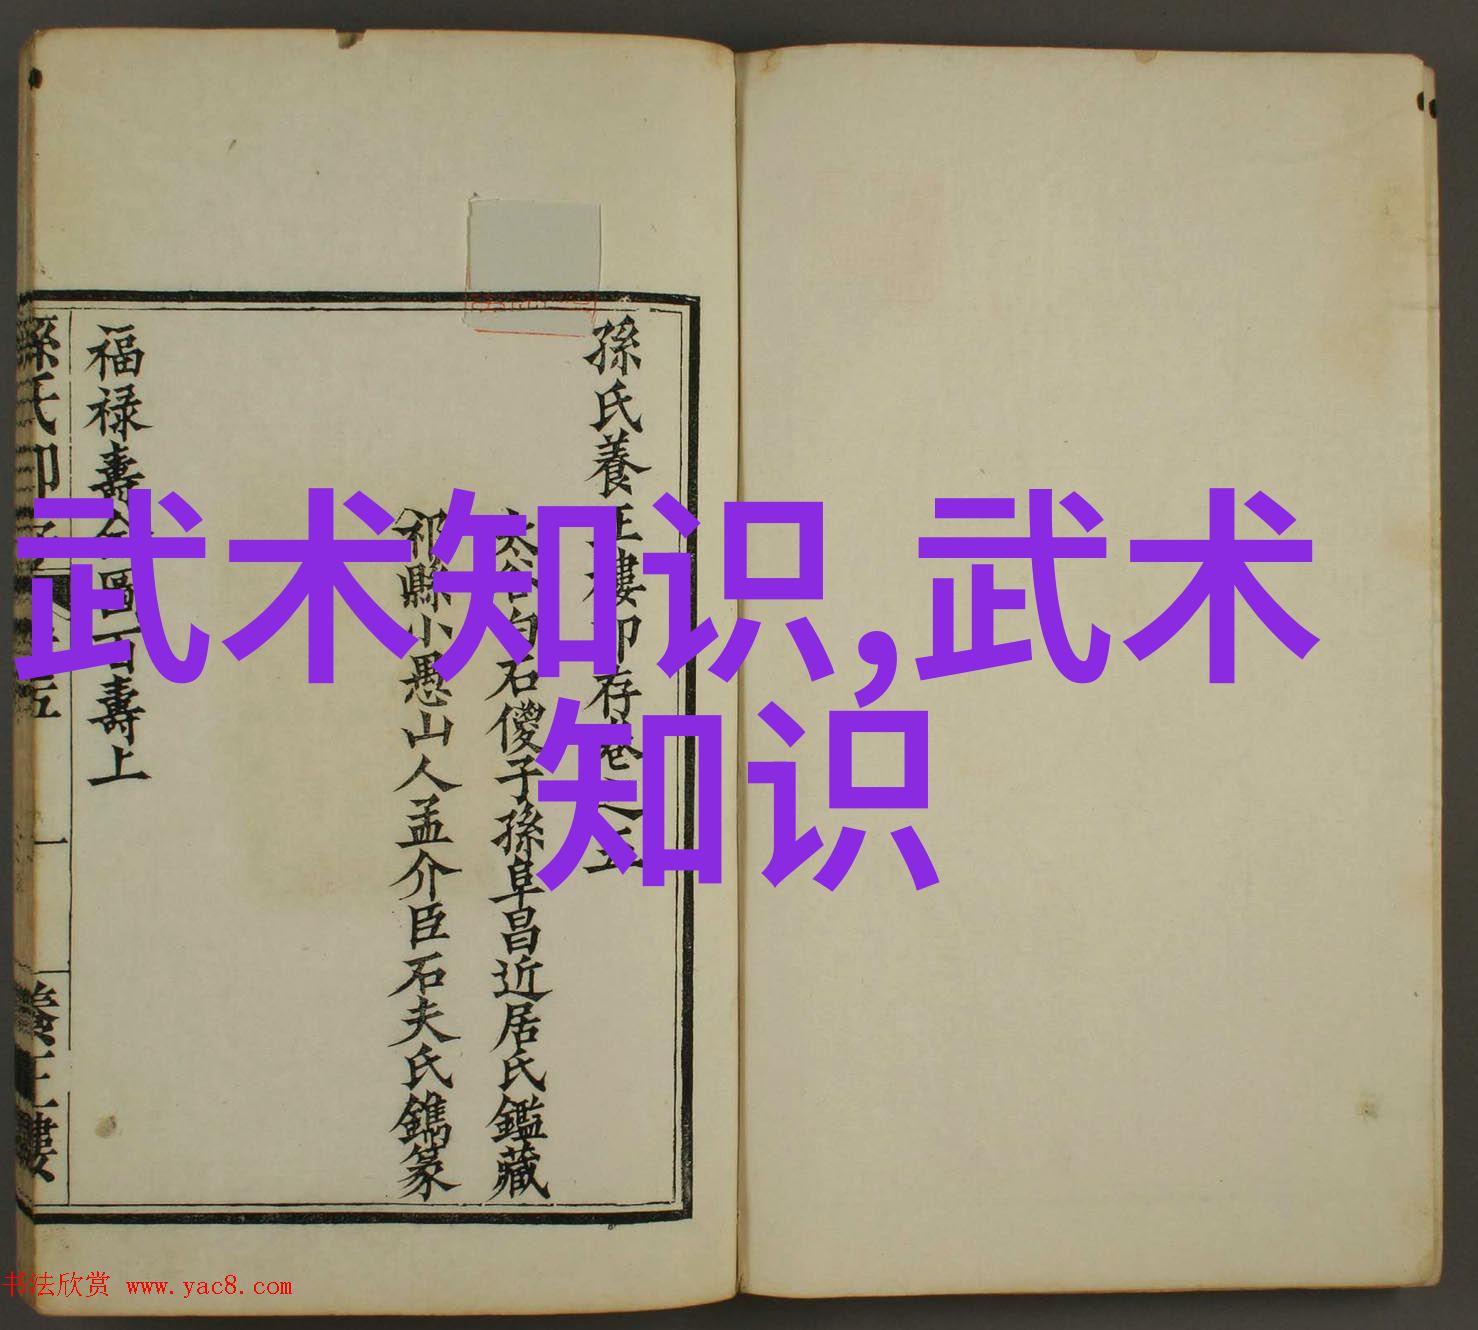 武术知识,武术
知识
孫氏養正樓印存卷之五
太谷白石傻子孫阜昌近居氏鑑藏
祁縣小愚山人孟介臣石夫氏鐫篆
福禄壽全圖百壽上
孫氏印存 五 一 養正樓
书法欣赏 www.yac8.com